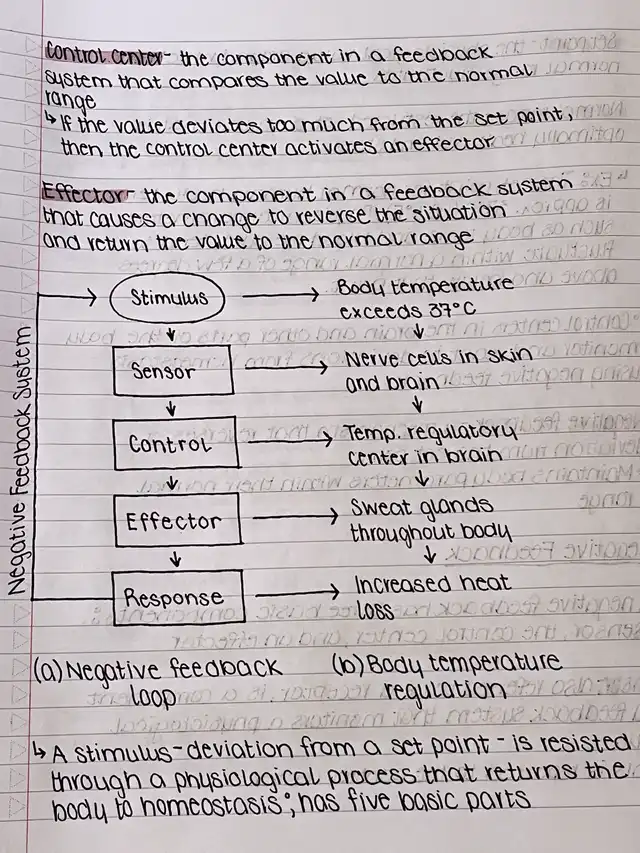 Control center- the component in a feedback
system that compares the value to the normal
range
↳ If the value deviates too much from the set point,
then the control center activates an effector
Effector- the component in a feedback system
that causes a change to reverse the situation
and return the value to the normal range
Negative Feedback System
Stimulus → Body temperature
exceeds 37°C
Sensor → Nerve cells in skin
and brain
Control → Temp. regulatory
center in brain
Effector → Sweat glands
throughout body
Response → Increased heat
loss
(a) Negative feedback
loop
(b) Body temperature
regulation
↳ A stimulus-deviation from a set point-is resisted
through a physiological process that returns the
body to homeostasis; has five basic parts